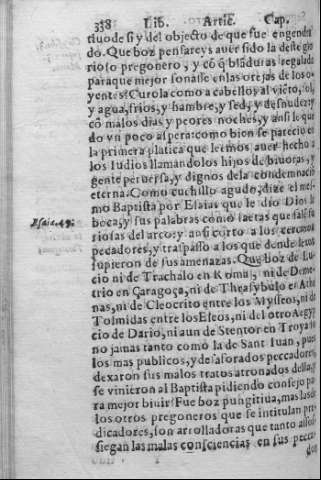 338 Lib. Artic. Cap.
tiuo de si y del objecto de que fue engendra
do. Que boz pensareys auer sido la deste glo
rioso pregonero, y cō q̄ blāduras regalada
paraque mejor sonasse en las orejas de los o-
yentes? Curola como a cabellos al viēto, sol,
y agua, frios, y hambre, y sed, y desnudez y
cō malos dias y peores noches, y ansi le que
do vn poco aspera: como bien se parecio en
la primera platica que leemos auer hecho a
los Iudios llamandolos hijos de biuoras, y
gente peruersa, y dignos de la condemnaciō
eterna. Como cuchillo agudo, dize el mes-
mo Baptista por Esaias que le dio Dios la
Esaie. 49.
boca, y sus palabras como saetas que salē fu
riosas del arco: y ansi corto a los
pecadores, y traspasso a los que donde
supieron de sus amenazas. Que boz de Lu-
cio ni de Trachalo en Roma, ni de Deme-
trio en Çaragoça, ni de Thrasybulo en Athe
nas, ni de Cleocrito entre los Mysteos, ni de
Tolmidas entre los Eleos, ni del otro Aegyp
cio de Dario, ni aun de Stentor en Troya so
no jamas tanto como la de Sant Iuan, pues
los mas publicos, y desaforados peccadores,
dexaron sus malos tratos atronados della, y
se vinieron al Baptista pidiendo consejo pa
ra mejor biuir? Fue boz pungitiua, mas las de
los otros pregoneros que se intitulan pre
dicadores, son arrolladoras que tanto assos
siegan las malas consciencias en sus pecca-
dos